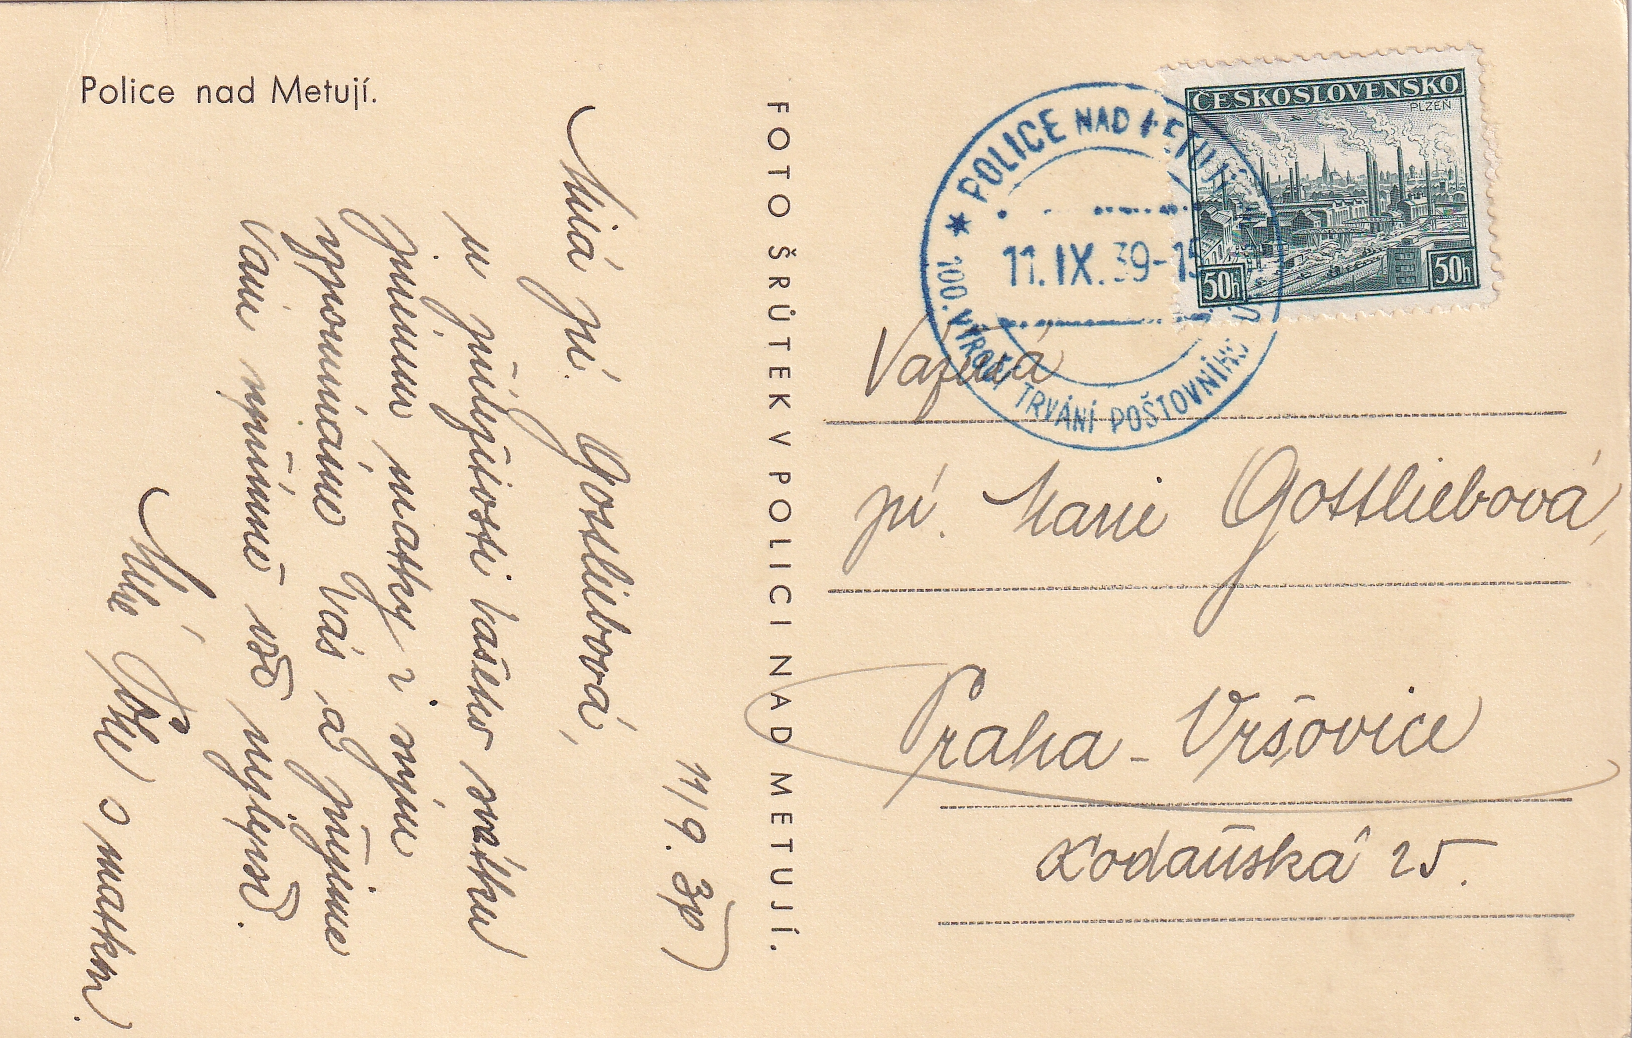 Police nad Metují.
11/9. 39
Milá pí. Gottliebová,
u příležitosti Vašeho svátku
jménem matky i svým
vzpomínáme Vás a přejeme
Vám upřímně vše nejlepší.
s matkou.
FOTO ŠRŮTEK V POLICI NAD METUJÍ.
ČESKOSLOVENSKO
PLZEŇ
50h 50h
★ POLICE NAD METUJÍ
11.IX.39-15
100. VÝROČÍ TRVÁNÍ POŠTOVNÍHO
Vážená
pí. Marie Gottliebová,
Praha - Vršovice
Kodaňská 25.